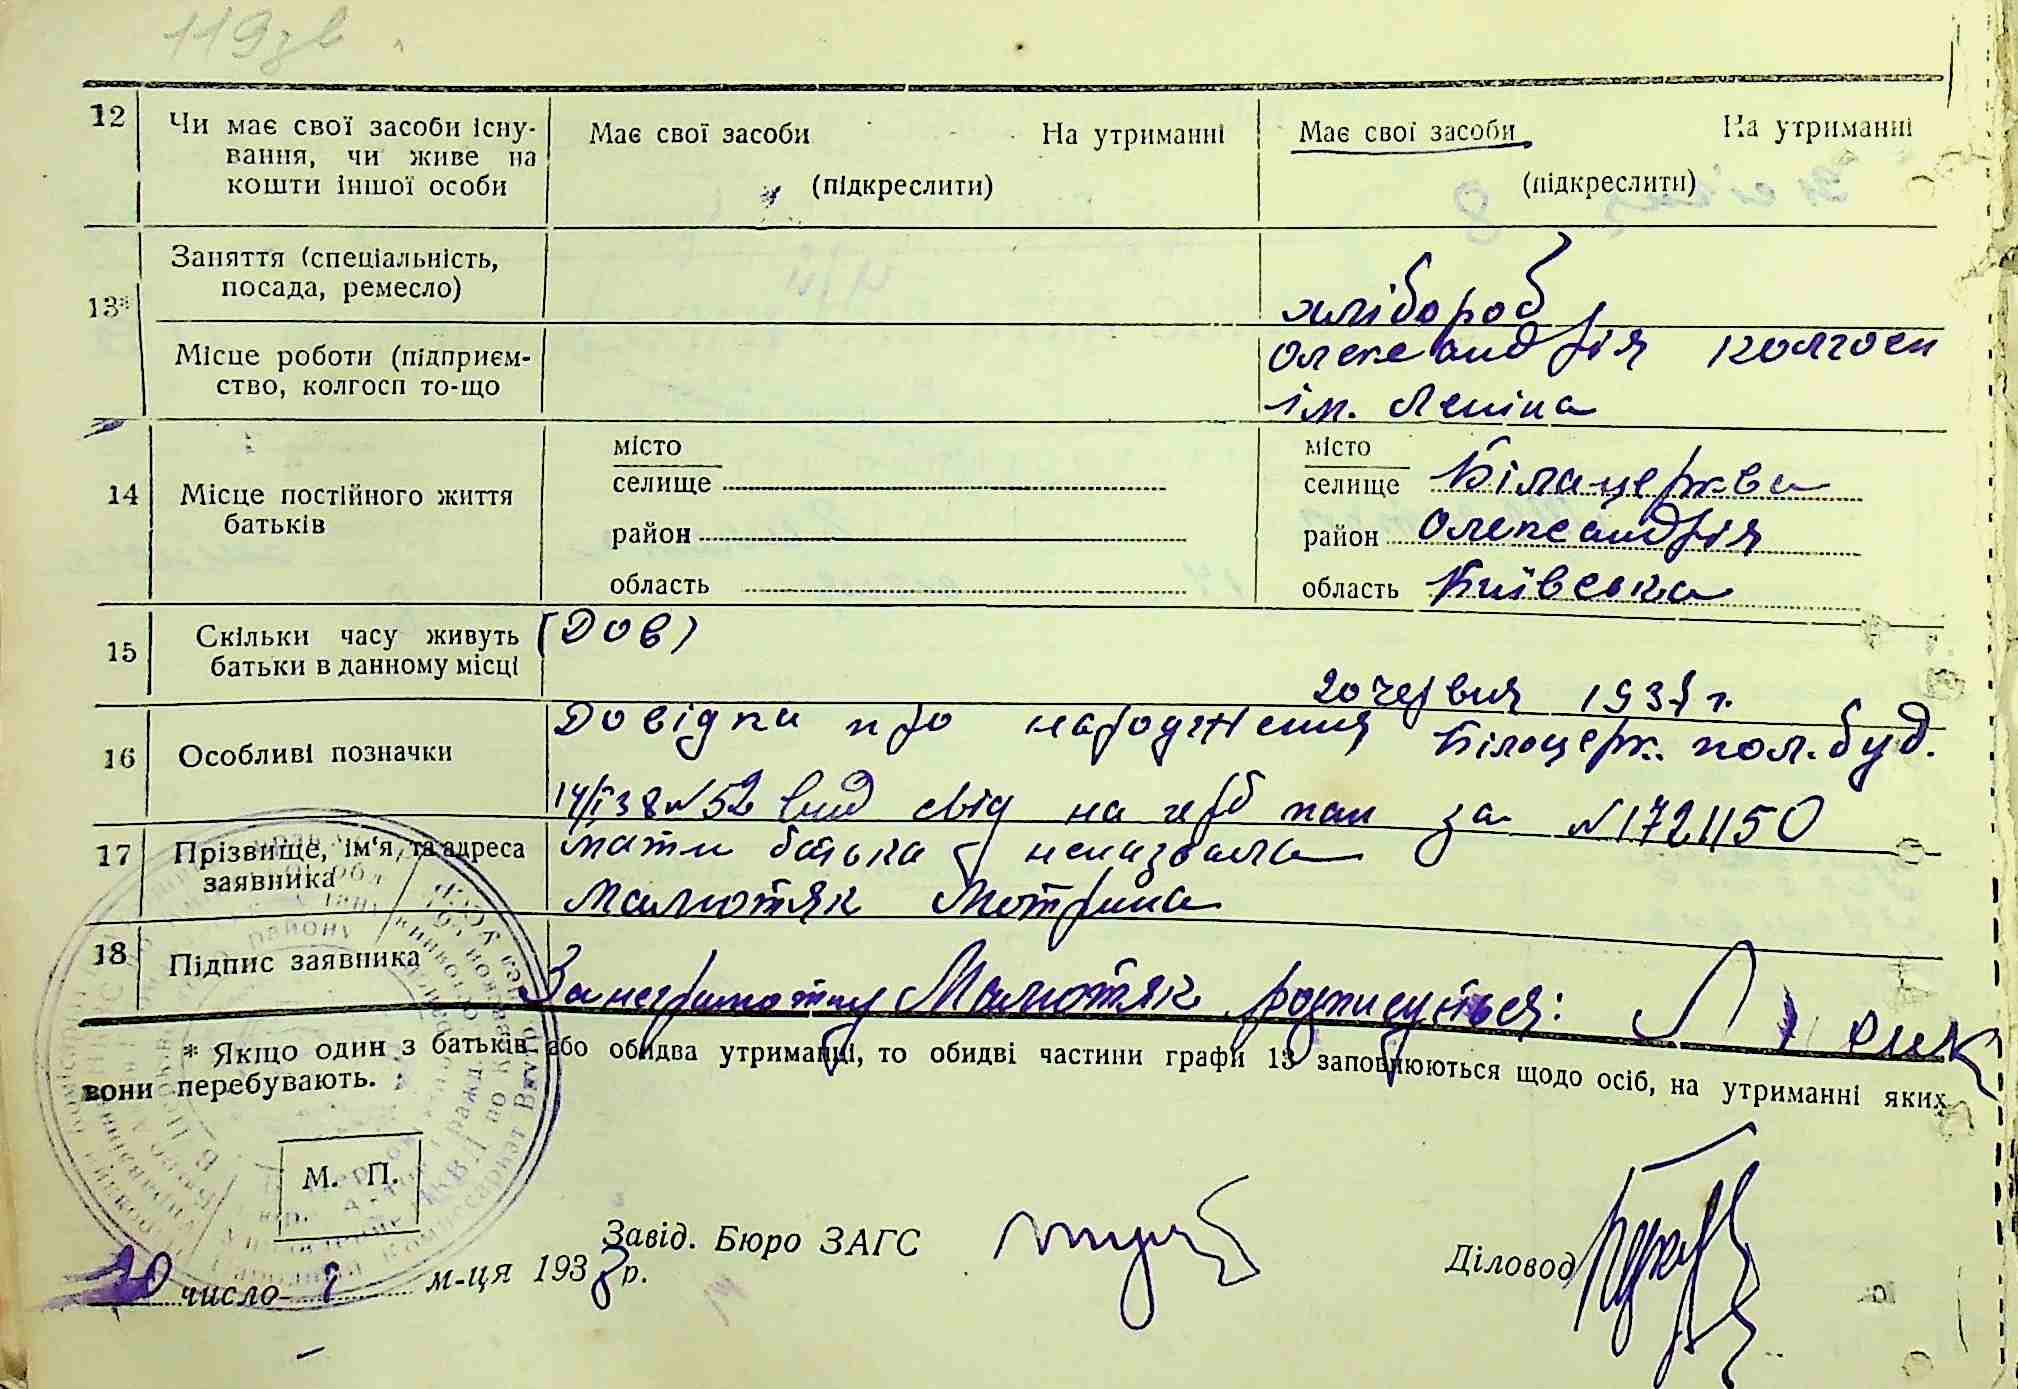 119зв
12 Чи має свої засоби існу-
вання, чи живе на
кошти іншої особи
Має свої засоби На утриманні
(підкреслити)
Має свої засоби На утриманні
(підкреслити)
13* Заняття (спеціальність,
посада, ремесло)
хлібороб
Місце роботи (підприєм-
ство, колгосп то-що
Олександрія колгосп
ім. Леніна
14 Місце постійного життя
батьків
місто
селище
район
область
місто
селище Білацерква
район Олександрія
область Київська
15 Скільки часу живуть
батьки в данному місці
(Дов)
20 червня 193 г.
16 Особливі позначки
Довідки про народження Білоцерк. пол. буд.
14/I 38 № 52 вид свід на за № 172450
17 Прізвище, ім'я, та адреса
заявника
мати батька неназвала
Малютяк Мотрина
18 Підпис заявника
За неграмотну Малютяк розписується:
* Якщо один з батьків або обидва утриманці, то обидві частини графи 13 заповнюються щодо осіб, на утриманні яких
вони перебувають.
М. П.
Завід. Бюро ЗАГС
Діловод
20 число м-ця 1938 р.